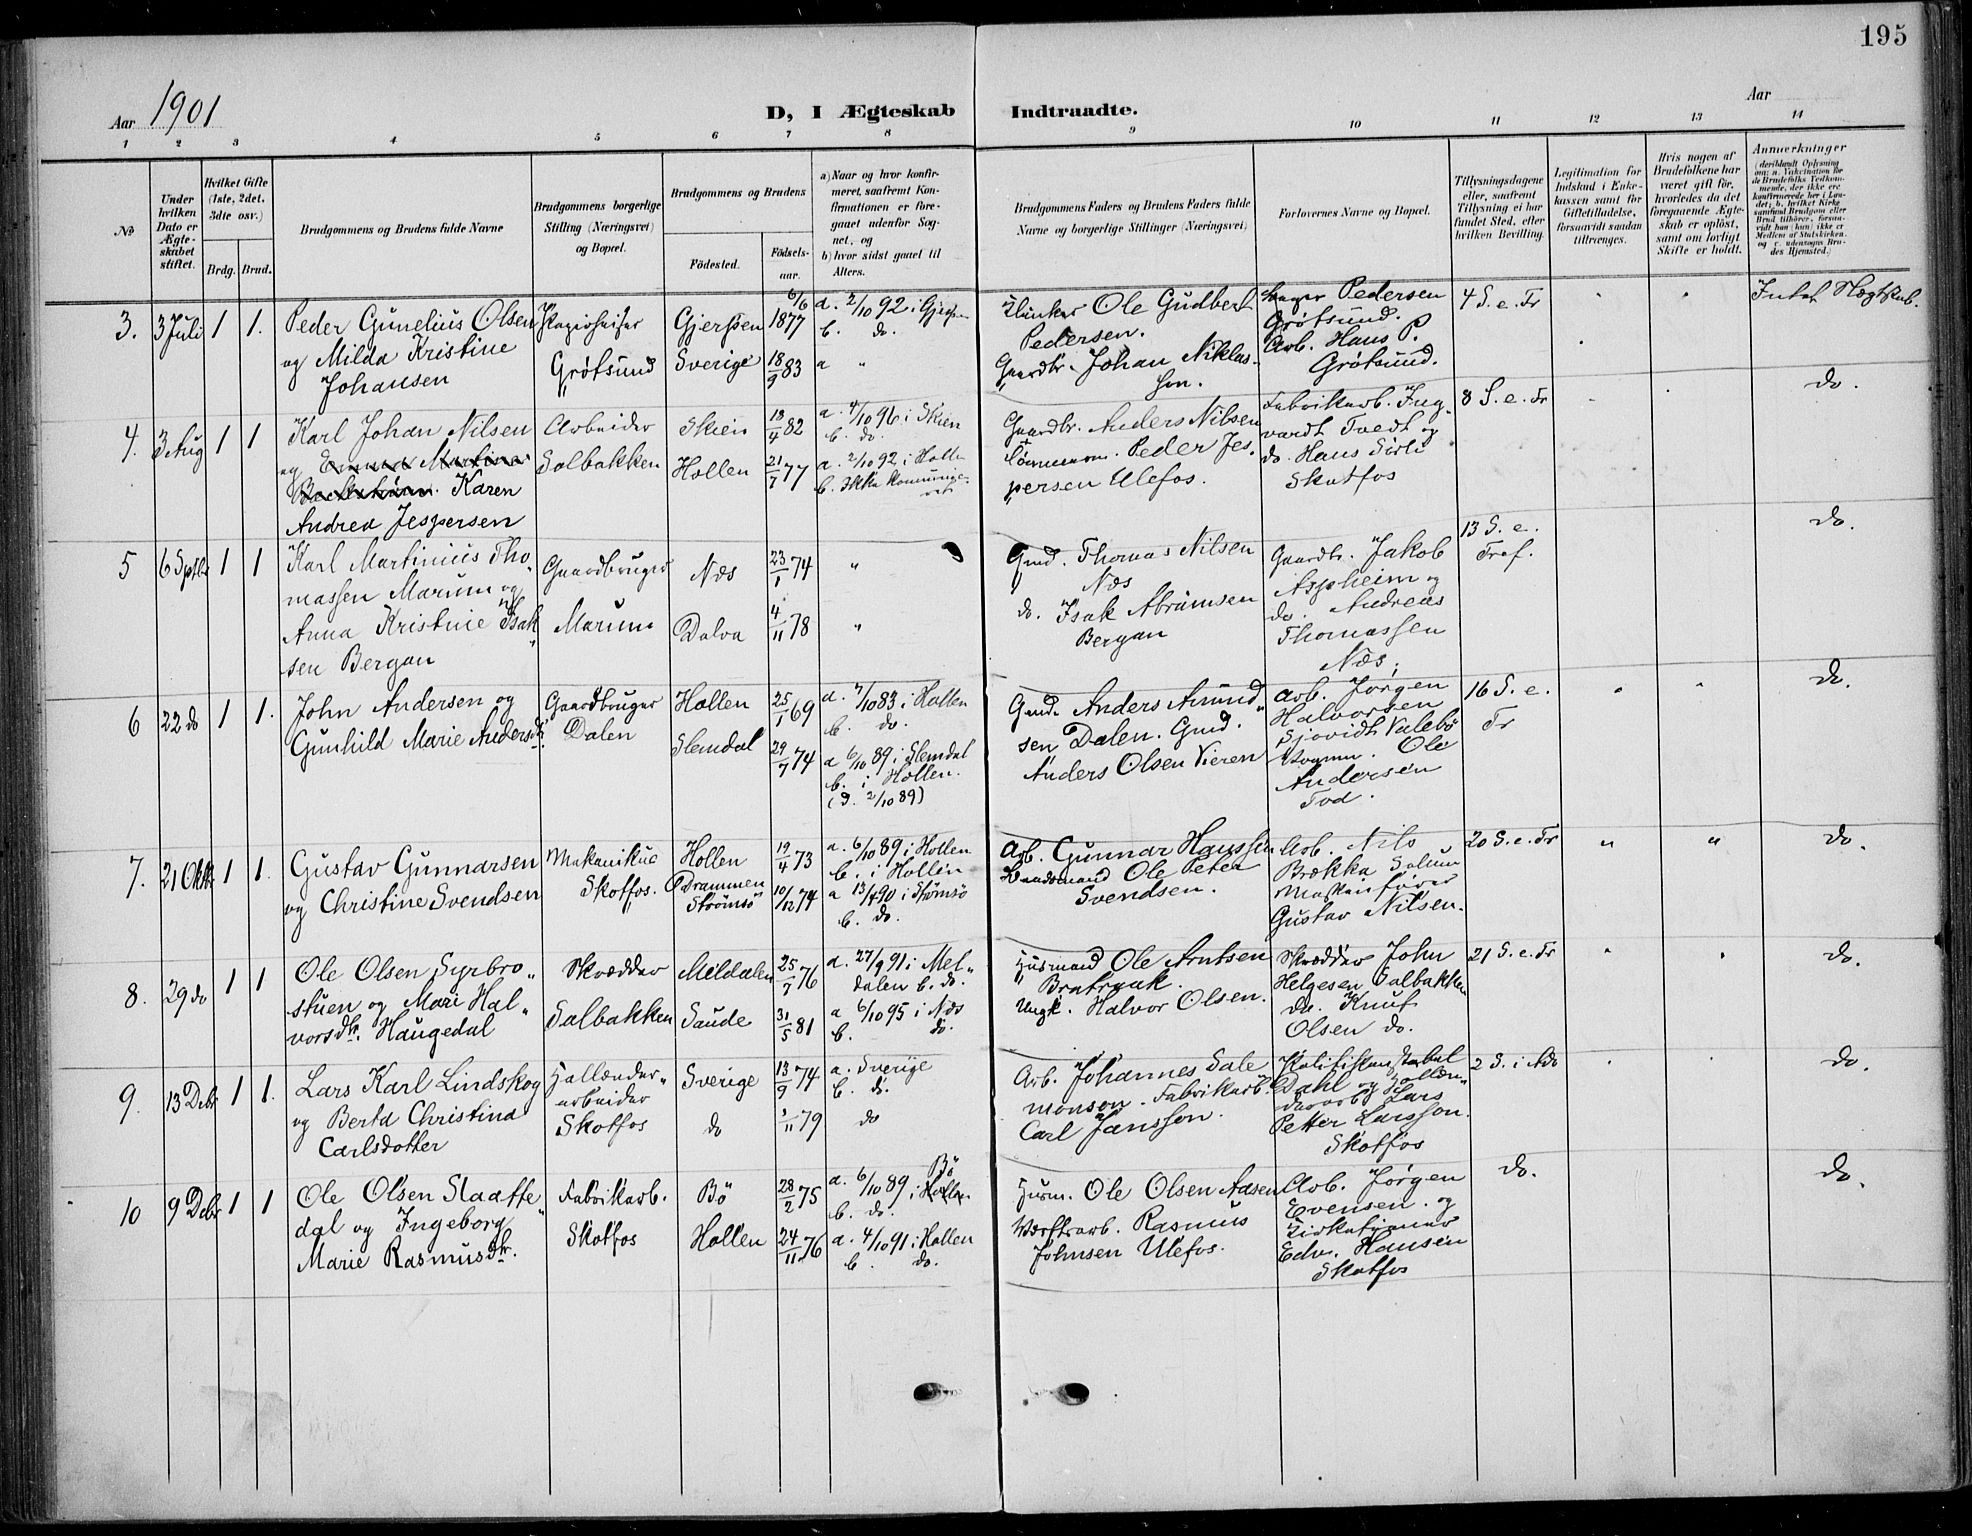 195
Aar 1901
D, I Ægteskab Indtraadte.
Aar
1 2 3 4 5 6 7 8 9 10 11 12 13 14
No
Under hvilken Dato er Ægteskabet stiftet.
Hvilket Gifte (1ste, 2det, 3die osv.)
Brdg. Brud.
Brudgommens og Brudens fulde Navne
Brudgommens borgerlige Stilling (Næringsvei) og Bopæl.
Brudgommens og Brudens
Fødested.
Fødselsaar.
a) Naar og hvor konfirmeret, saafremt Konfirmationen er foregaaet udenfor Sognet, og
b) hvor sidst gaaet til Alters.
Brudgommens Faders og Brudens Faders fulde Navne og borgerlige Stillinger (Næringsvei)
Forlovernes Navne og Bopæl.
Tillysningsdagene eller, saafremt Tillysning ei har fundet Sted, efter hvilken Bevilling.
Legitimation for Indskud i Enkekassen samt for Giftetilladelse, forsaavidt saadan tiltrænges.
Hvis nogen af Brudefolkene har været gift før, hvorledes da det foregaaende Ægteskab er opløst, samt om lovligt Skifte er holdt.
Anmerkninger
3. 3 Juli 1 1.
Peder Gunelius Olsen
og Milda Kristine
Johansen
Grøtsund
Gjerpen 6/6 1877
Sverige 18/9 83
a. 2/10 92 i Gjerpen
b. do.
a "
Ole Gudbert
Pedersen.
Gaardbr. Johan Niklas-
son.
Pedersen
Grøtsund.
Arb. Hans P.
Grøtsund.
4 S. e. Tr
Intet Slægtskab.
4. 3 Aug 1 1
Karl Johan Nilsen
og Karen
Andrea Jespersen
Arbeider
Solbakken
Skien 18/4 82
Hollen 21/7 77
a. 4/10 96 i Skien
b. do.
a. 2/10 92 i Holla
b. Ikke kommunice-
ret
Gaardbr. Anders Nilsen
Peder Jes-
persen Ulefos.
Fabrikarb. Ing-
vardt Tvedt og
do. Hans Sørli
Skotfos
8 S. e. Tr
do.
5 6 Sptbr 1 1
Karl Martinius Tho-
massen Marum og
Anna Kristine Isak-
sen Bergan
Gaardbruger
Marum
Næs 23/1 74
Dalva 4/11 78
"
"
Gmd. Thomas Nilsen
Næs
do. Isak Abramsen
Bergan
Gaardbr. Jakob
Aspheim og
do. Andreas
Thomassen
Næs.
13 S. e.
Tref.
do.
6 22 do 1 1.
John Andersen og
Gunhild Marie Andersdt.
Gaardbruger
Dalen
Hollen 25/1 69
Slemdal 29/7 74
a. 7/10 83 i Hollen
b. do.
a 6/10 89 i Slemdal
b. i Hollen.
(d. 2/10 89)
Gmd. Anders Amund-
sen Dalen. Gmd.
Anders Olsen Vieren
Arb. Jørgen
Halvorsen
Valebø
Ole
Andersen
16 S. e.
Tr
do.
7. 21 Oktbr 1 1.
Gustav Gunnarsen
og Christine Svendsen
Mekanikus
Skotfos.
Hollen 19/4 73
Drammen
Strømsø 10/12 74
a. 6/10 89 i Hollen
b. i Hollen
a 13/4 90 i Strømsø
b. do.
Arb. Gunnar Hanssen
Ole Peter
Svendsen.
Arb. Nils
Brekka Solum
Maskinfører
Gustav Nilsen.
20 S. e. Tr
" "
do.
8. 29 do 1 1
Ole Olsen Syrbro-
stuen og Mari Hal-
vorsdtr. Haugedal
Skrædder
Solbakken
Meldalen 25/7 76
Saude 31/5 81
a. 27/9 91 i Mel-
dalen b. do.
a 6/10 95 i Næs
b. do.
Husmand Ole Arntsen
Bratraak.
Ungk. Halvor Olsen.
Skrædder John
Helgesen Solbakken
do. Knut
Olsen do.
21 S. e. Tr
do.
9. 13 Debr 1 1.
Lars Karl Lindskog
og Berta Christina
Carlsdotter
Hollænder-
arbeider
Skotfos
Sverige 13/9 74
do 1/11 79
a. Sverige
b. d.
do
Arb. Johannes Sale
monson. Fabrikarb.
Carl Jansson.
Dahl og Hollæn-
derarb. Lars
Petter Larsson.
Skotfos
2 S. i Adv
do.
10 9 Debr 1 1
Ole Olsen Slaatte-
dal og Ingeborg
Marie Rasmusdtr.
Fabrikarb.
Skotfos
Bø 28/2 75
Hollen 24/11 76
a. 6/10 89 i Bø
b. do.
a. 4/10 91 i Hollen
b. do.
Husm. Ole Olsen Aasen
Værftsarb. Rasmus
Johnsen Ulefos.
Arb. Jørgen
Evensen og
Kirketjener
Edv. Hansen
Skotfos
do.
do.